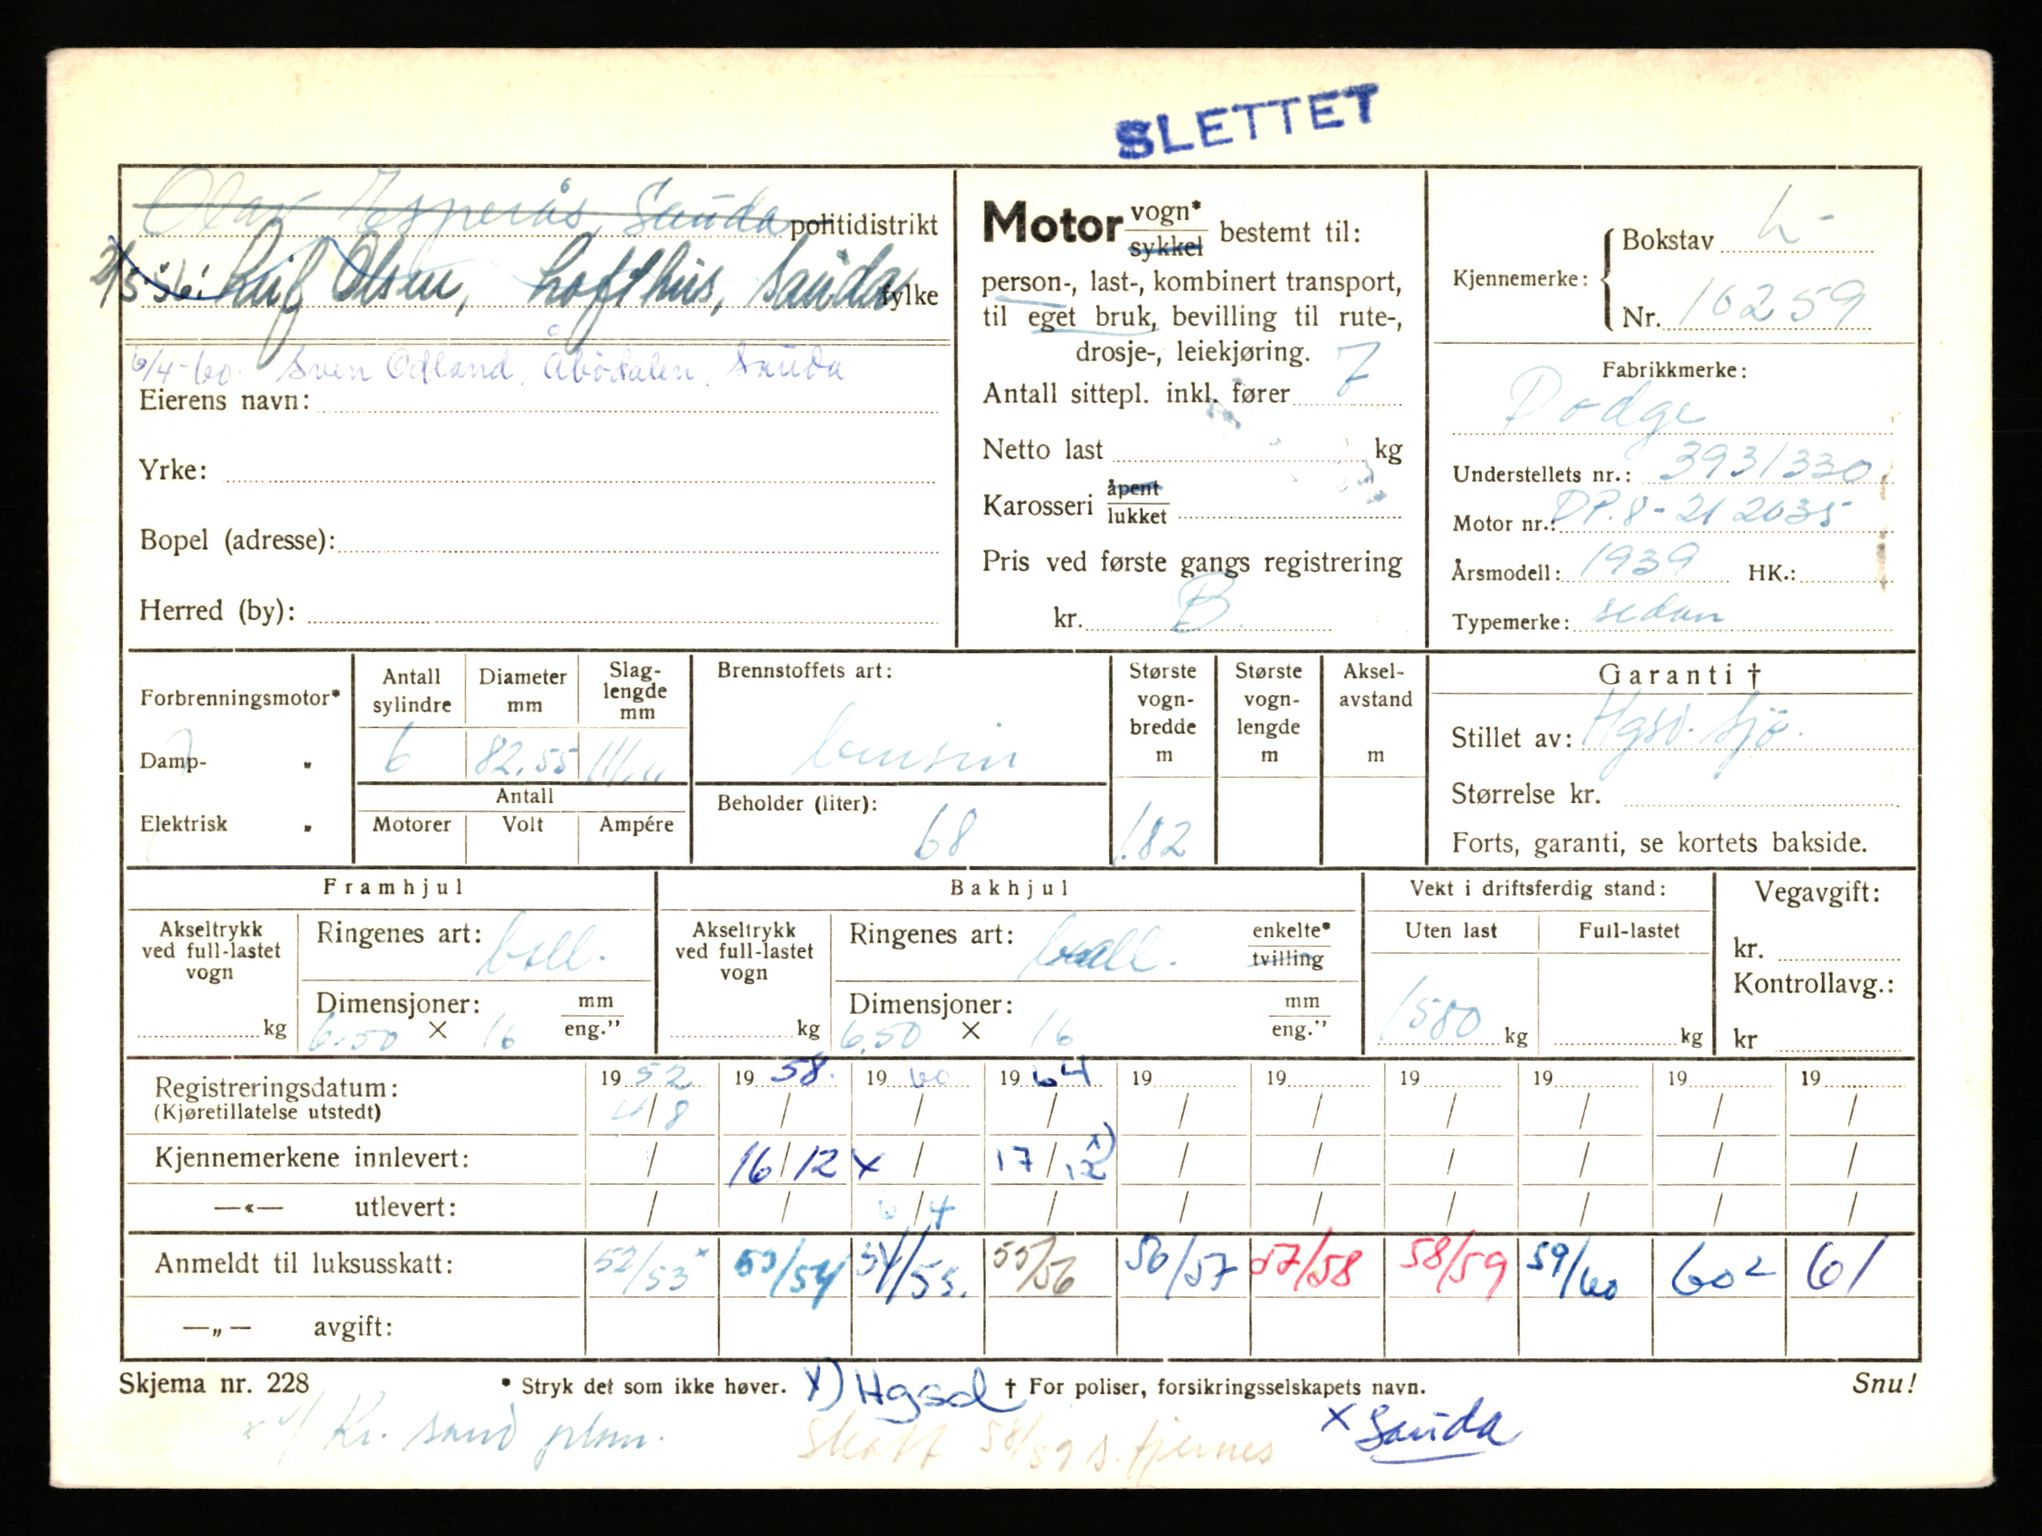 SLETTET
Olav Esperäs, Sauda politidistrikt
2/5 56: Leif Olsen, Lofthus, Sauda fylke
6/4-60: Sven Ødland, Åbødalen, Sauda
Eierens navn:
Yrke:
Bopel (adresse):
Herred (by):
Motor vogn* sykkel bestemt til:
person-, last-, kombinert transport,
til eget bruk, bevilling til rute-,
drosje-, leiekjøring.
Antall sittepl. inkl. fører 7
Netto last kg
Karosseri åpent lukket
Pris ved første gangs registrering
kr. B
Kjennemerke: Bokstav L-
Nr. 16259
Fabrikkmerke:
Dodge
Understellets nr.: 3931330
Motor nr.: DP.8-212035
Årsmodell: 1939 HK.:
Typemerke: sedan
Forbrenningsmotor*
Damp- „
Elektrisk „
Antall sylindre 6
Diameter mm 82,55
Slag-lengde mm 111,11
Antall
Motorer Volt Ampére
Brennstoffets art:
bensin
Beholder (liter):
68
Største vogn-bredde m 1.82
Største vogn-lengde m
Aksel-avstand m
Garanti †
Stillet av: Hgsd. Sjø.
Størrelse kr.
Forts, garanti, se kortets bakside.
Framhjul
Akseltrykk ved full-lastet vogn kg
Ringenes art: ball.
Dimensjoner: mm
6.50 × 16 eng.”
Bakhjul
Akseltrykk ved full-lastet vogn kg
Ringenes art: ball. enkelte* tvilling
Dimensjoner: mm
6.50 × 16 eng.”
Vekt i driftsferdig stand:
Uten last Full-lastet
1580 kg kg
Vegavgift:
kr.
Kontrollavg.:
kr
Registreringsdatum: 1952 1958. 1960 1964 19 19 19 19 19 19
(Kjøretillatelse utstedt) 4/8 / / / / / / / / /
Kjennemerkene innlevert: / 16/12 x / 17/12 x) / / / / / /
—«— utlevert: / / 6/4 / / / / / / /
Anmeldt til luksusskatt: 52/53 x 53/54 54/55. 55/56 56/57 57/58 58/59 59/60 60² 61
—„— avgift:
Skjema nr. 228 * Stryk det som ikke høver. x) Hgsd † For poliser, forsikringsselskapets navn. Snu!
Kr. sand
Skatt 58/59 s. fjernes
x Sauda